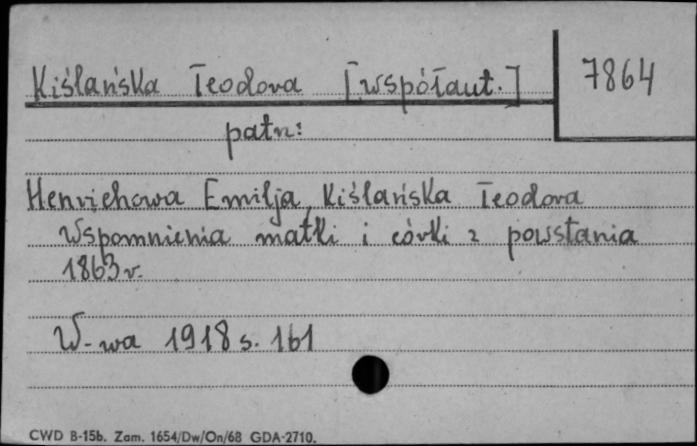 Kiślańska Teodora [współaut.] 7864
patrz:
Henrichowa Emilja, Kiślańska Teodora
Wspomnienia matki i córki z powstania
1863 r.
W-wa 1918 s. 161
CWD B-15b. Zam. 1654/Dw/On/68 GDA-2710.